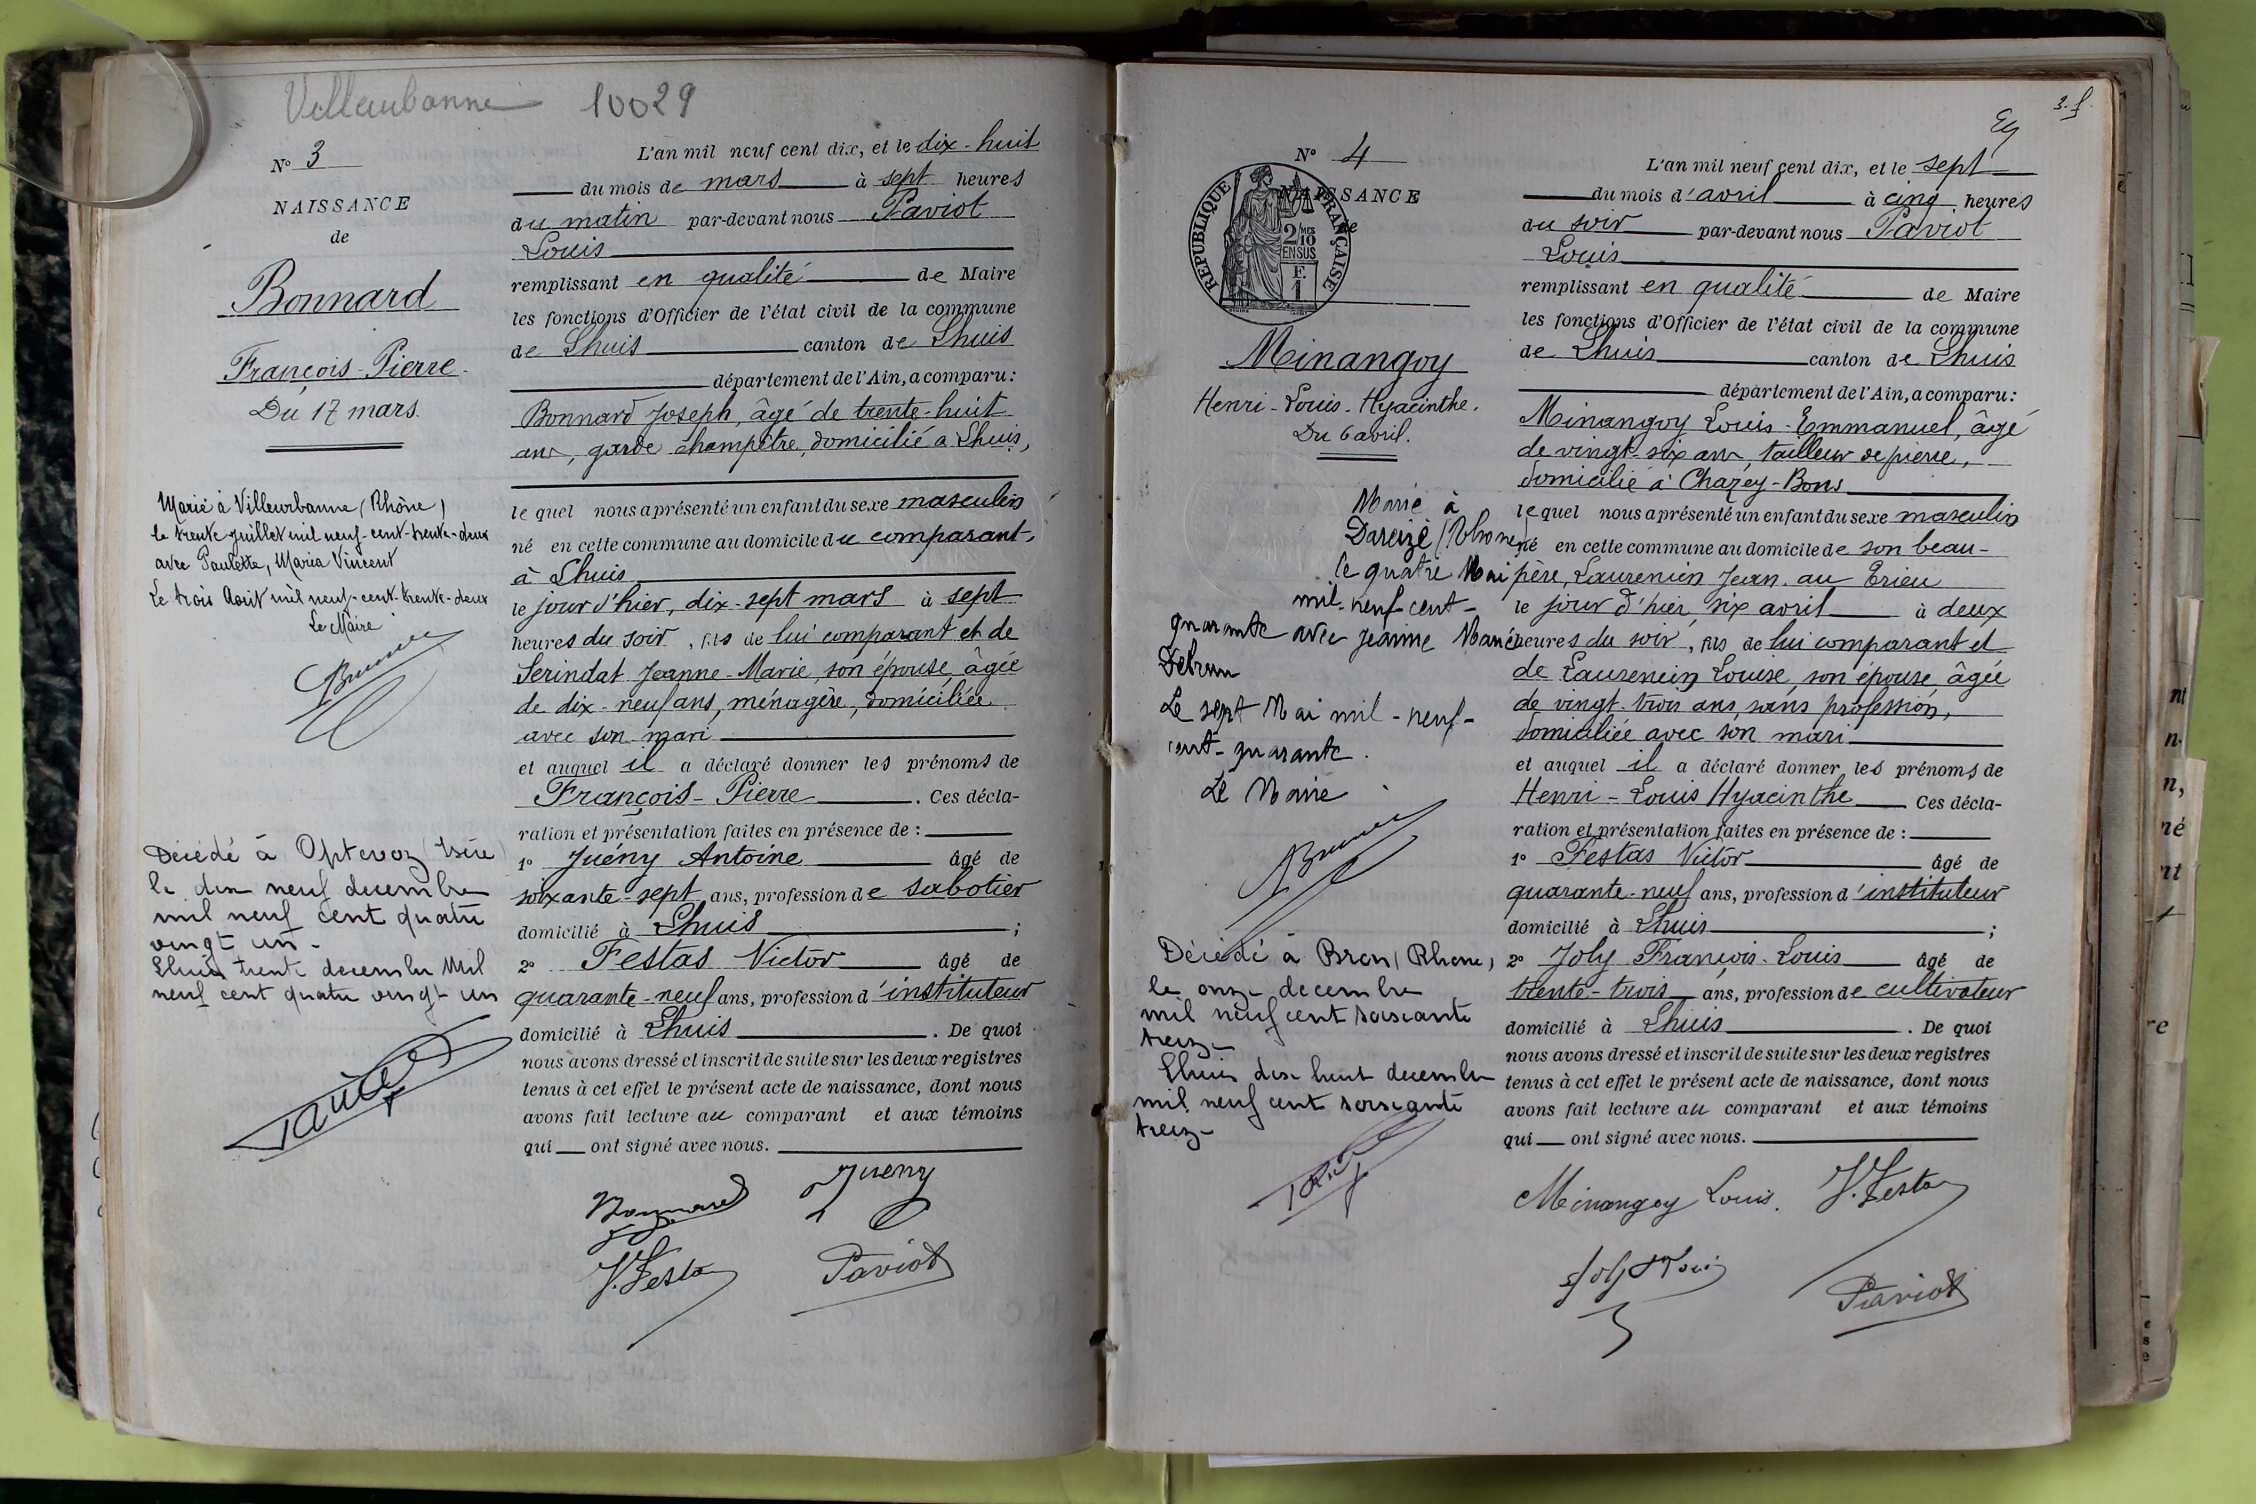 Villeurbanne 10029
N° 3
NAISSANCE
de
Bonnard
François-Pierre.
Du 17 mars.
Marié à Villeurbanne (Rhône)
le trente juillet mil neuf-cent-trente-deux
avec Paulette, Maria Vincent
Le trois Août mil neuf-cent-trente-deux
Le Maire
Décédé à Optevoz (Isère)
le dix neuf decembre
mil neuf cent quatre
vingt un.
Lhuis trente decembre Mil
neuf cent quatre vingt un
L'an mil neuf cent dix, et le dix-huit
du mois de mars à sept heures
du matin par-devant nous Paviot
Louis
remplissant en qualité de Maire
les fonctions d'Officier de l'état civil de la commune
de Lhuis canton de Lhuis
département de l'Ain, a comparu:
Bonnard Joseph, âgé de trente-huit
ans, garde champêtre, domicilié à Lhuis,
le quel nous a présenté un enfant du sexe masculin
né en cette commune au domicile du comparant,
à Lhuis
le jour d'hier, dix-sept mars à sept
heures du soir, fils de lui comparant et de
Serindat Jeanne-Marie, son épouse, âgée
de dix-neuf ans, ménagère, domiciliée
avec son mari
et auquel il a déclaré donner les prénoms de
François-Pierre. Ces décla-
ration et présentation faites en présence de :
1° Juény Antoine âgé de
soixante-sept ans, profession de sabotier
domicilié à Lhuis ;
2° Festas Victor âgé de
quarante-neuf ans, profession d'instituteur
domicilié à Lhuis. De quoi
nous avons dressé et inscrit de suite sur les deux registres
tenus à cet effet le présent acte de naissance, dont nous
avons fait lecture au comparant et aux témoins
qui ont signé avec nous.
Bonnard Juény
V. Festas Paviot
3. f.
N° 4
NAISSANCE
de
RÉPUBLIQUE FRANÇAISE
2/10 MES
EN SUS
F.
1
Minangoy
Henri-Louis-Hyacinthe.
Du 6 avril.
Marié à
Dareizé (Rhone)
le quatre Mai
mil-neuf-cent-
quarante avec Jeanne Marie
Debrun
Le sept Mai mil-neuf-
cent-quarante.
Le Maire
Décédé à Bron (Rhone)
le onze decembre
mil neuf cent soixante
treize
Lhuis dix huit decembre
mil neuf cent soixante
treize
L'an mil neuf cent dix, et le sept
du mois d'avril à cinq heures
du soir par-devant nous Paviot
Louis
remplissant en qualité de Maire
les fonctions d'Officier de l'état civil de la commune
de Lhuis canton de Lhuis
département de l'Ain, a comparu:
Minangoy Louis-Emmanuel, âgé
de vingt-six ans, tailleur de pierre,
domicilié à Chazey-Bons
le quel nous a présenté un enfant du sexe masculin
né en cette commune au domicile de son beau-
père, Laurencin Jean, au Trieu
le jour d'hier, six avril à deux
heures du soir, fils de lui comparant et
de Laurencin Louise, son épouse, âgée
de vingt-trois ans, sans profession,
domiciliée avec son mari
et auquel il a déclaré donner les prénoms de
Henri-Louis Hyacinthe Ces décla-
ration et présentation faites en présence de :
1° Festas Victor âgé de
quarante-neuf ans, profession d'instituteur
domicilié à Lhuis ;
2° Joly François-Louis âgé de
trente-trois ans, profession de cultivateur
domicilié à Lhuis. De quoi
nous avons dressé et inscrit de suite sur les deux registres
tenus à cet effet le présent acte de naissance, dont nous
avons fait lecture au comparant et aux témoins
qui ont signé avec nous.
Minangoy Louis. V. Festas
Paviot